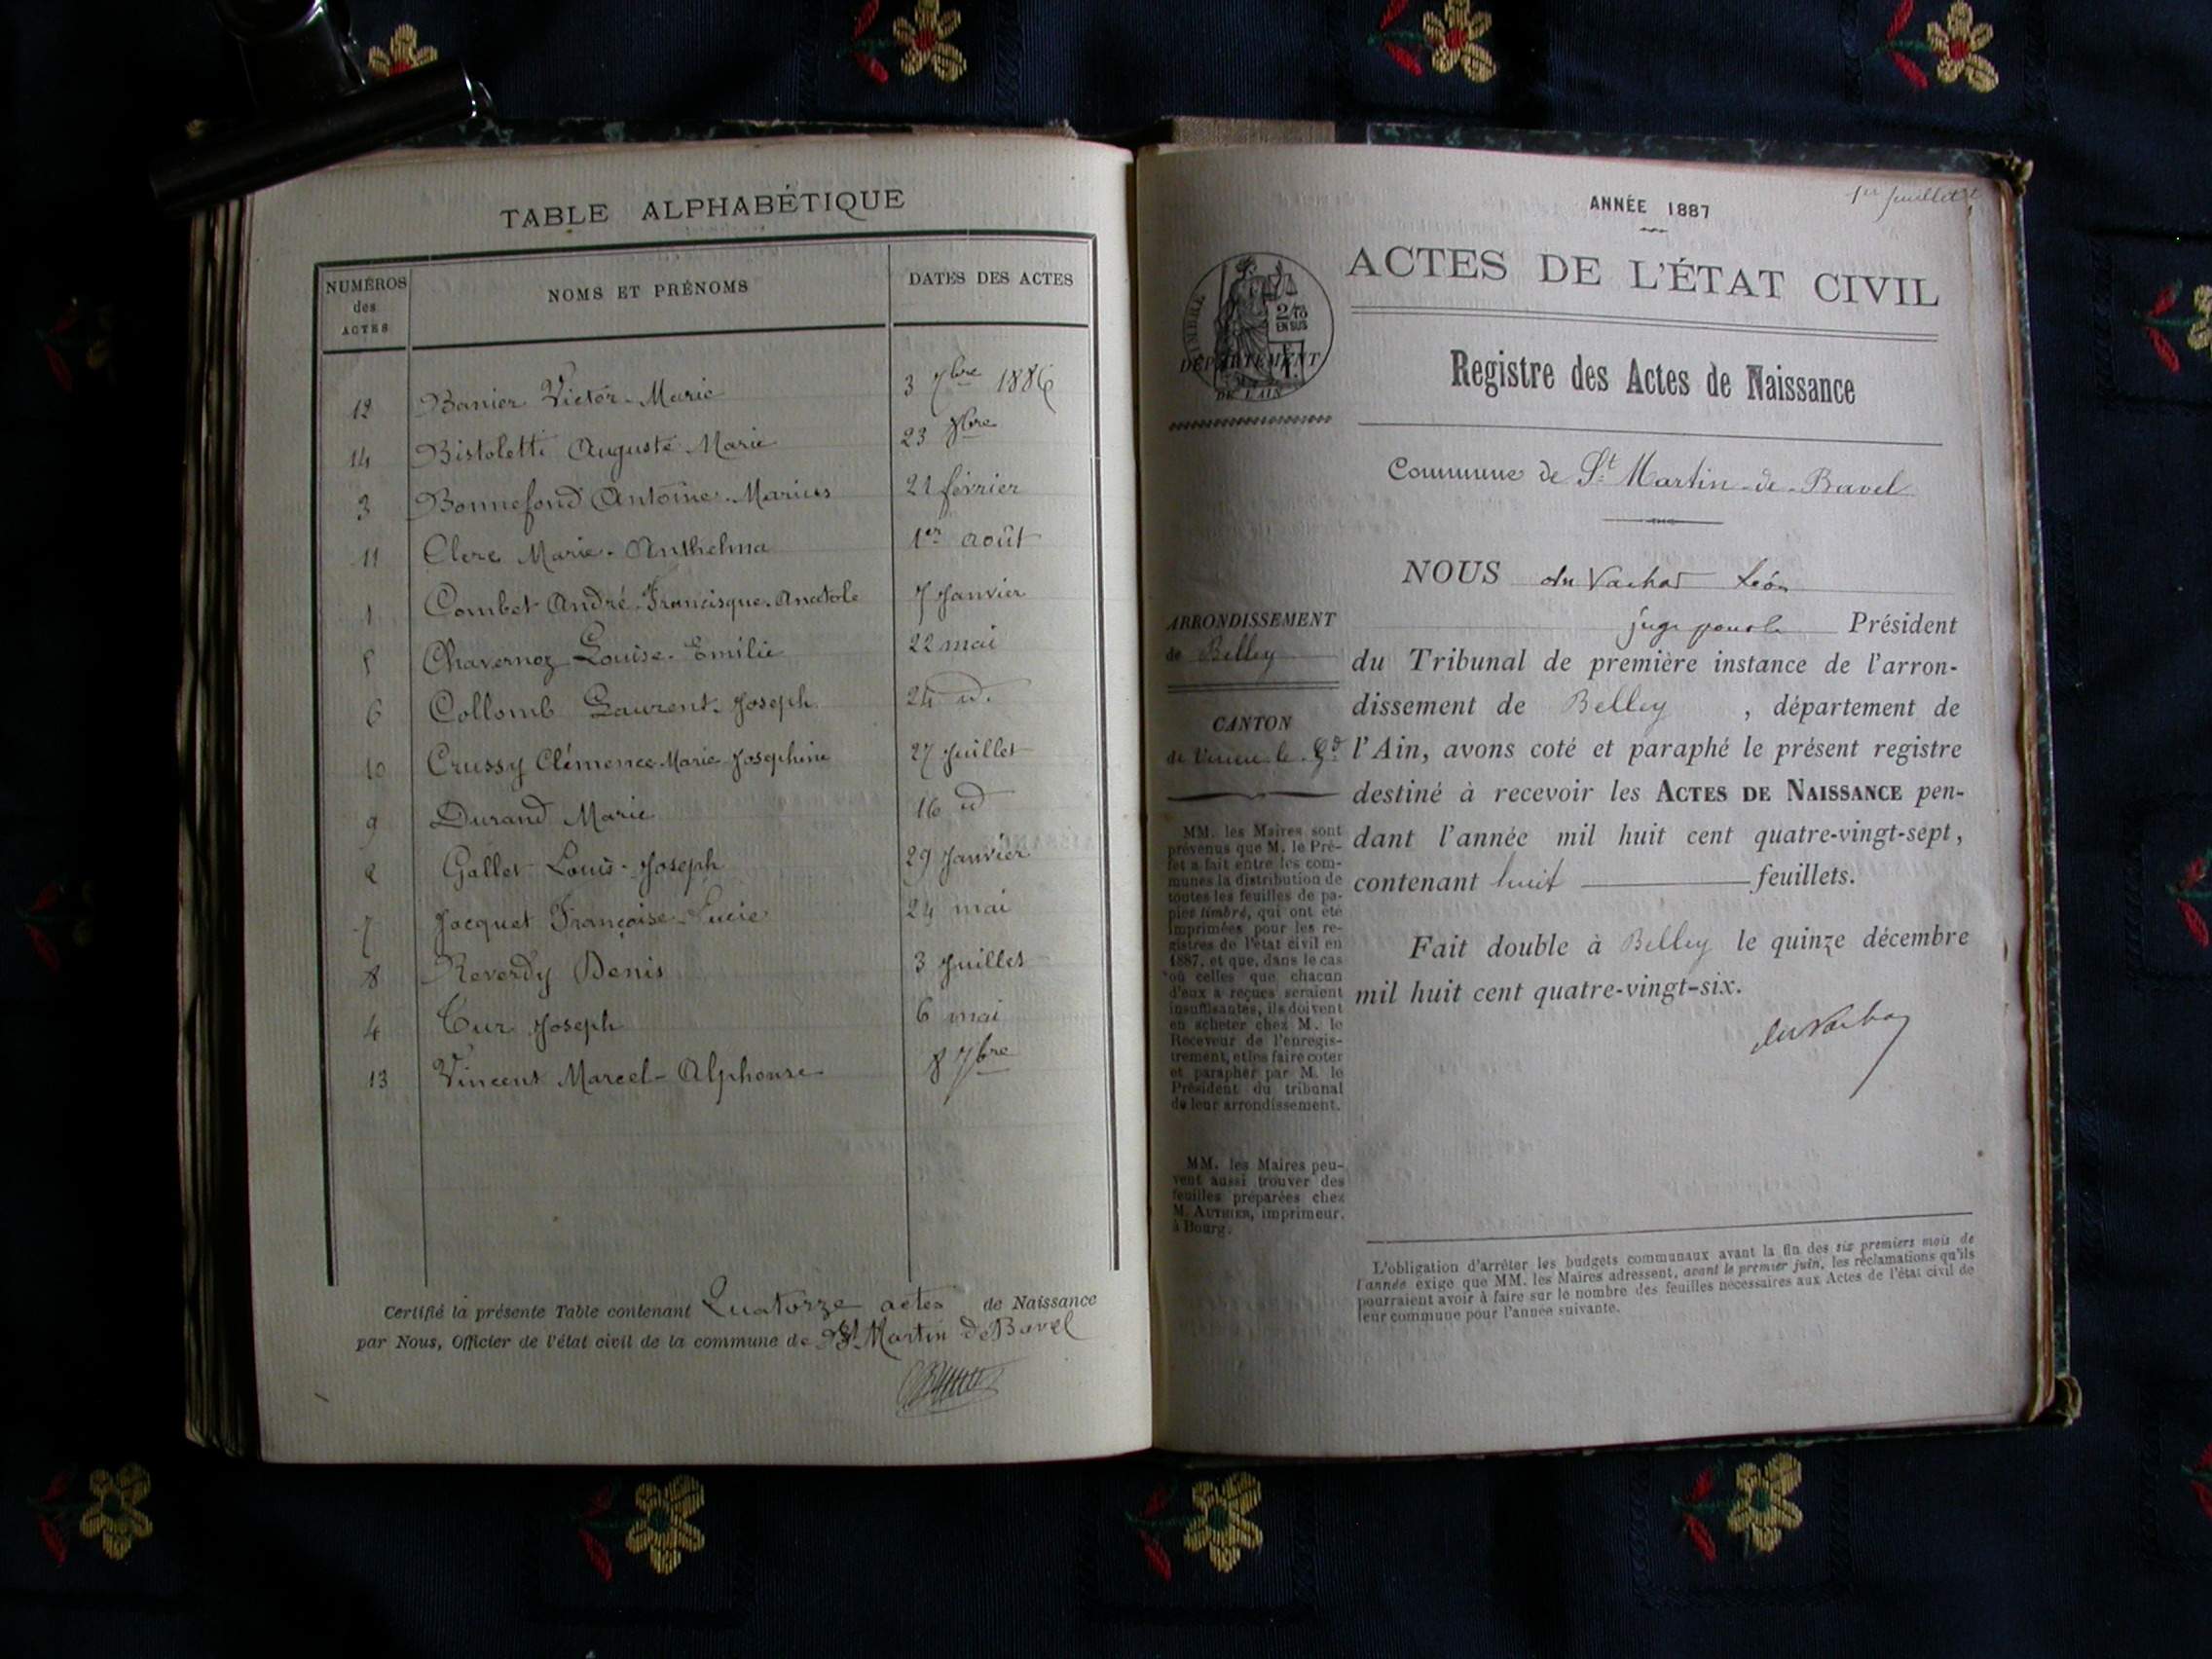 TABLE ALPHABÉTIQUE
NUMÉROS
des
ACTES
NOMS ET PRÉNOMS
DATES DES ACTES
12 Banier Victor-Marie 3 7bre 1886
14 Bistoletti Auguste Marie 23
3 Bonnefond Antoine-Marius 21 février
11 Clerc Marie-Anthelma 1er août
1 Combet André-Francisque-Anatole 7 Janvier
5 Chavernoz Louise-Emilie 22 mai
6 Collomb Laurent-Joseph 24 id.
10 Crussy Clémence-Marie-Joséphine 27 Juillet
9 Durand Marie 16 id
2 Gallet Louis-Joseph 29 Janvier
7 Jacquet Françoise-Lucie 24 mai
8 Reverdy Denis 3 Juillet
4 Cur Joseph 6 mai
13 Vincent Marcel-Alphonse 8 7bre
Certifié la présente Table contenant Quatorze actes de Naissance
par Nous, Officier de l'état civil de la commune de St Martin De Bavel
1er Juillet
ANNÉE 1887
ACTES DE L'ÉTAT CIVIL
2/10
EN SUS
DÉPARTEMENT
DE L'AIN
Registre des Actes de Naissance
Commune de St Martin-de-Bavel
NOUS du Vachat Léon
juge pour le Président
du Tribunal de première instance de l'arron-
dissement de Belley, département de
l'Ain, avons coté et paraphé le présent registre
destiné à recevoir les ACTES DE NAISSANCE pen-
dant l'année mil huit cent quatre-vingt-sept,
contenant huit feuillets.
Fait double à Belley le quinze décembre
mil huit cent quatre-vingt-six.
du Vachat
ARRONDISSEMENT
de Belley
CANTON
de Virieu-le-Gd
MM. les Maires sont
prévenus que M. le Pré-
fet a fait entre les com-
munes la distribution de
toutes les feuilles de pa-
pier timbré, qui ont été
imprimées pour les re-
gistres de l'état civil en
1887, et que, dans le cas
où celles que chacun
d'eux a reçues seraient
insuffisantes, ils doivent
en acheter chez M. le
Receveur de l'enregis-
trement, et les faire coter
et parapher par M. le
Président du tribunal
de leur arrondissement.
MM. les Maires peu-
vent aussi trouver des
feuilles préparées chez
M. AUTHIER, imprimeur,
à Bourg.
L'obligation d'arrêter les budgets communaux avant la fin des six premiers mois de
l'année exige que MM. les Maires adressent, avant le premier juin, les réclamations qu'ils
pourraient avoir à faire sur le nombre des feuilles nécessaires aux Actes de l'état civil de
leur commune pour l'année suivante.